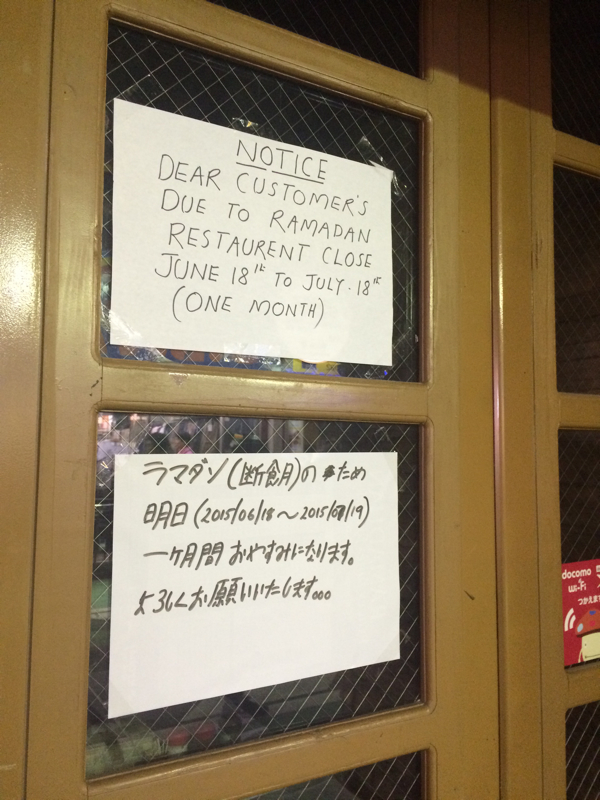 NOTICE
DEAR CUSTOMER'S
DUE TO RAMADAN
RESTAURENT CLOSE
JUNE 18th TO JULY. 18th
(ONE MONTH)
ラマダン(断食月)の ため
明日(2015/06/18～2015/07/19)
一ヶ月間 おやすみになります。
よろしくお願いいたします。。。
docomo
Wi-Fi
つかえま